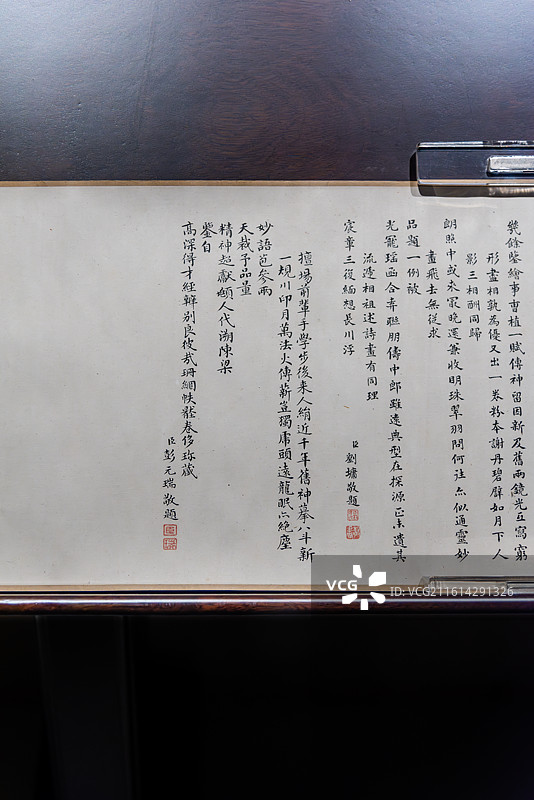 幾餘鑒繪事曹植一賦傳神留因新及舊兩鏡光互寫窮
形盡相孰為優又出一卷粉本謝丹碧辟如月下人
影三相酬同歸
朗照中或未家晚運兼收明珠翠羽問何往亦似通靈妙
畫飛去無從求
品題一例放
光寵瑤函合弆聯朋儔中郎雖遠典型在探源正未遺其
流遞相祖述詩畫有同理
宸章三復緬想長川浮
臣劉墉敬題
擅場前輩手學步後來人絹近千年舊神摹八斗新
一規川印月萬法火傳薪豈獨虎頭遠龍眠亦絕塵
妙語苞參兩
天裁予品量
精神超獻頫人代溯陳梁
鑒自
高深得才經韓別良彼哉珊網帙卷侈珍藏
臣彭元瑞敬題
VCG
ID:VCG211614291326